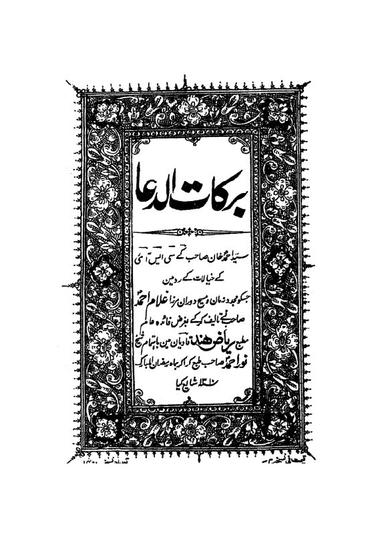 برکات الدعا
سید احمد خان صاحب کے سی ایس آئی
کے خیالات کے رد مین
جسکو مجدد زمان و مسیح دوران مرزا غلام احمد
صاحب نے تالیف کر کے بغرض فائدہ عام
مطبع ریاض ہند قادیان مین باہتمام شیخ
نور احمد صاحب طبع کرا کر بماہ رمضان المبارک
شائع کیا